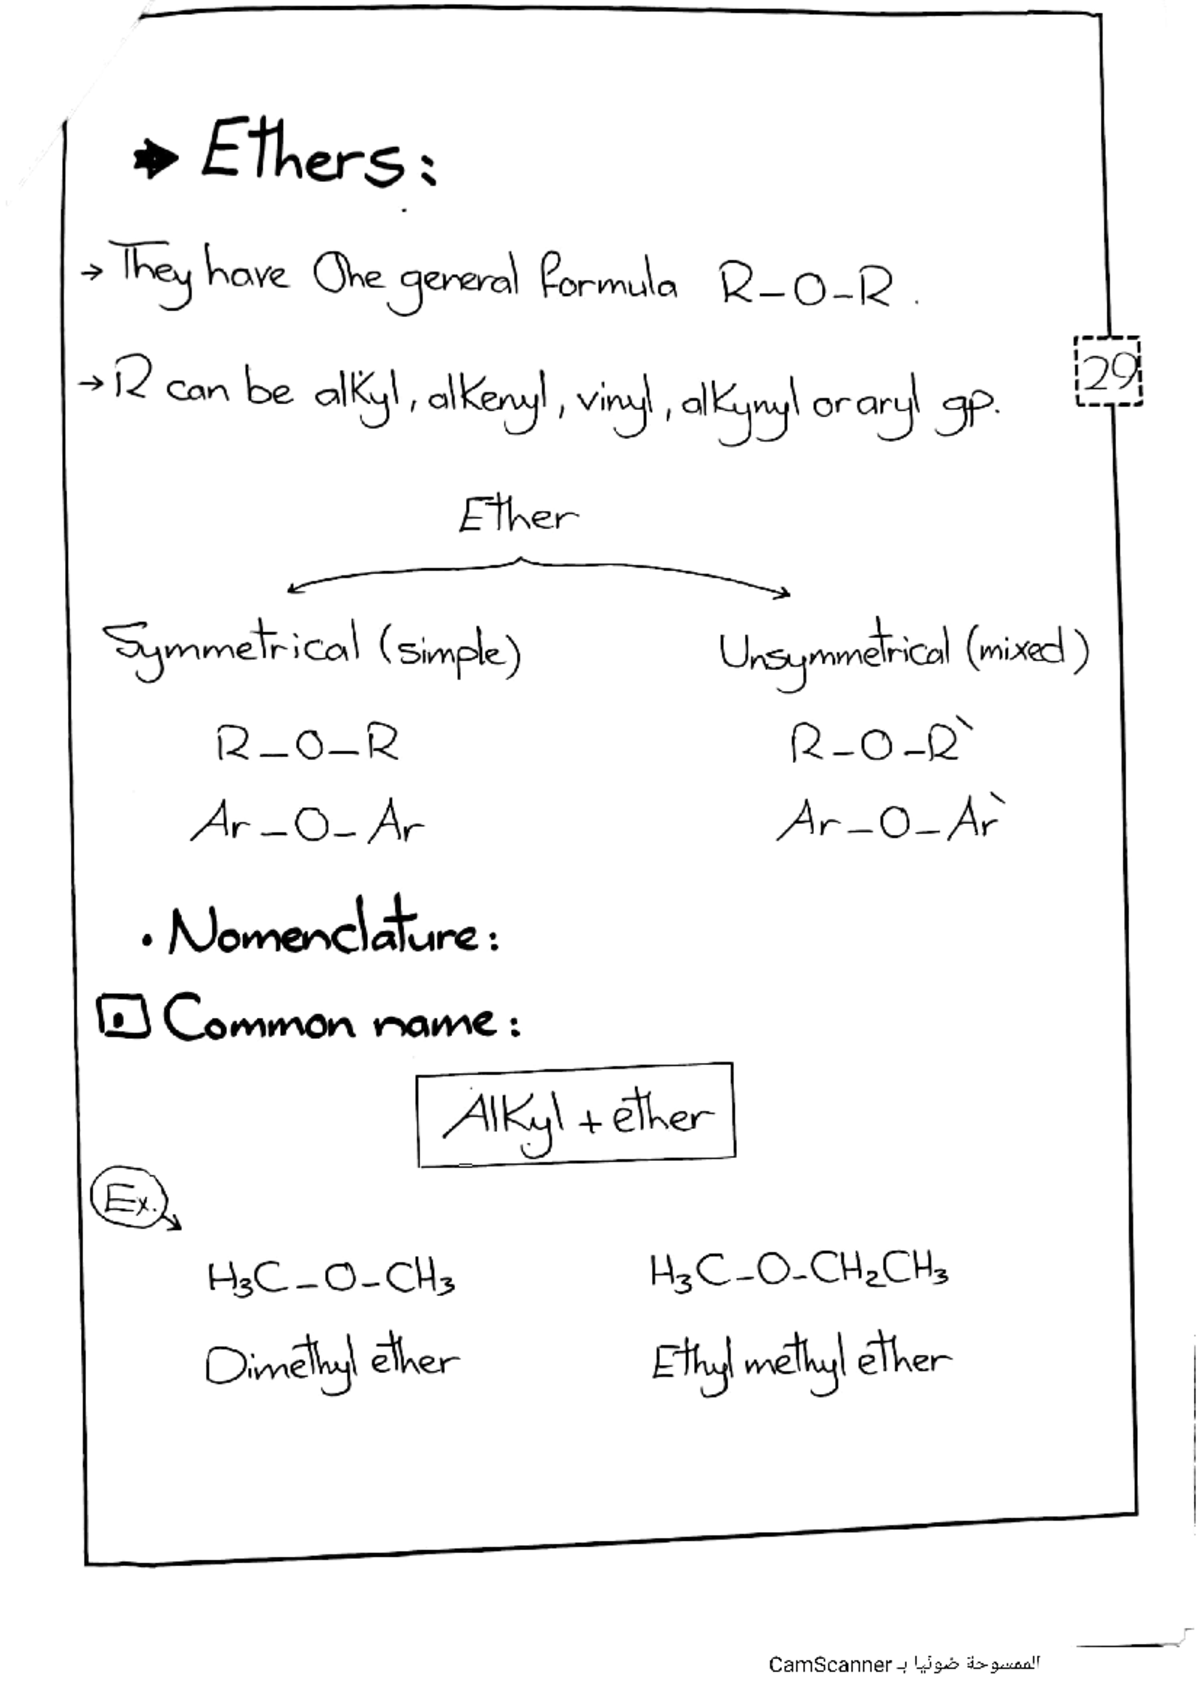 → Ethers:
→ They have One general formula R-O-R.
29
→ R can be alkyl, alkenyl, vinyl, alkynyl or aryl gp.
Ether
Symmetrical (simple) Unsymmetrical (mixed)
R-O-R R-O-R`
Ar-O-Ar Ar-O-Ar`
• Nomenclature:
Common name:
Alkyl + ether
Ex.
H₃C-O-CH₃ H₃C-O-CH₂CH₃
Dimethyl ether Ethyl methyl ether
الممسوحة ضوئيا بـ CamScanner